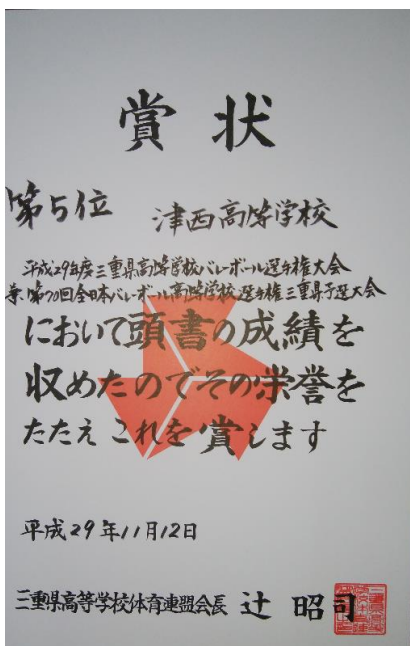 賞状
第5位 津西高等学校
平成29年度三重県高等学校バレーボール選手権大会
兼第70回全日本バレーボール高等学校選手権三重県予選大会
において頭書の成績を
収めたのでその栄誉を
たたえこれを賞します
平成29年11月12日
三重県高等学校体育連盟会長 辻 昭司